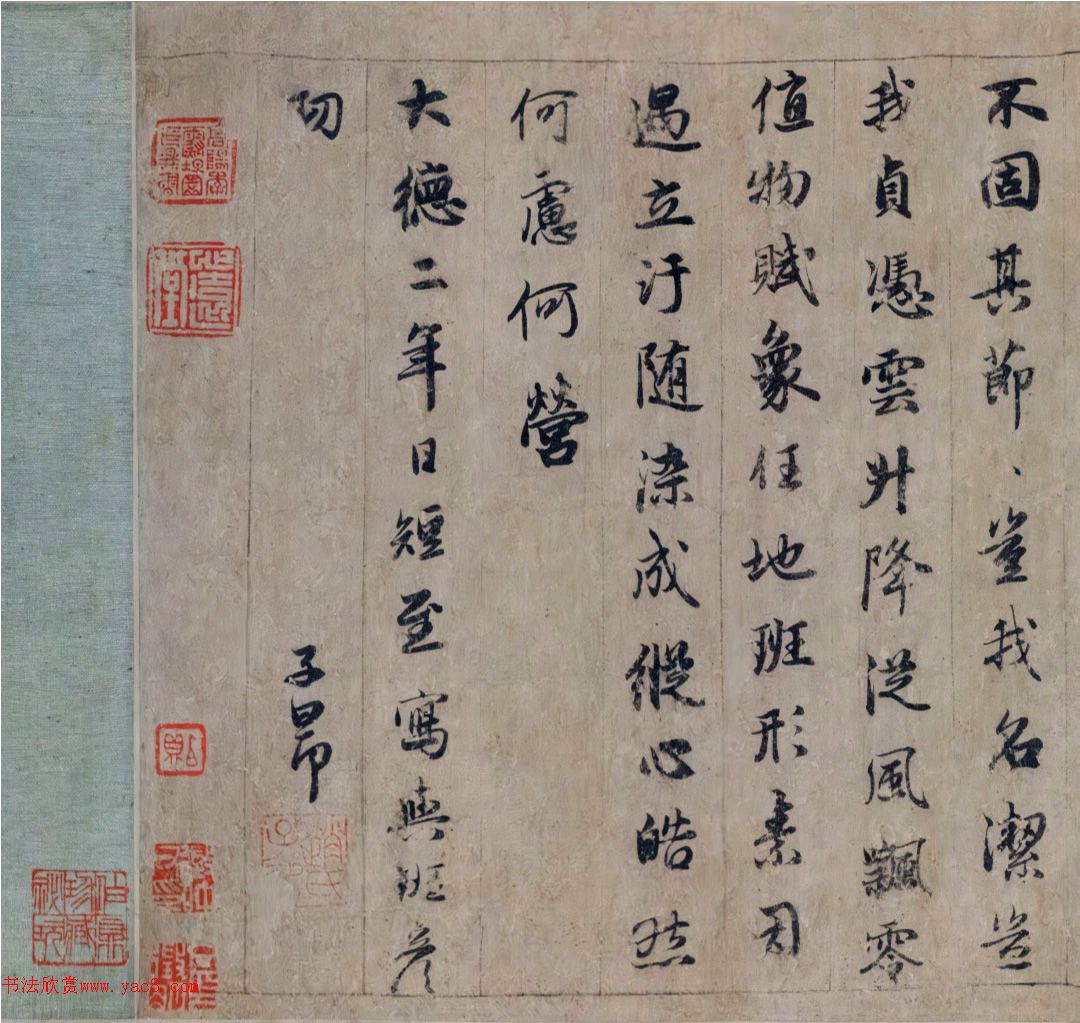 不固其節、豈我名潔豈
我貞憑雲升降從風飄零
值物賦象任地班形素因
遇立汙隨染成縱心皓然
何慮何營
大德二年日短至寫與班彥
功
子昂
趙氏子昂
书法欣赏www.yac8.com